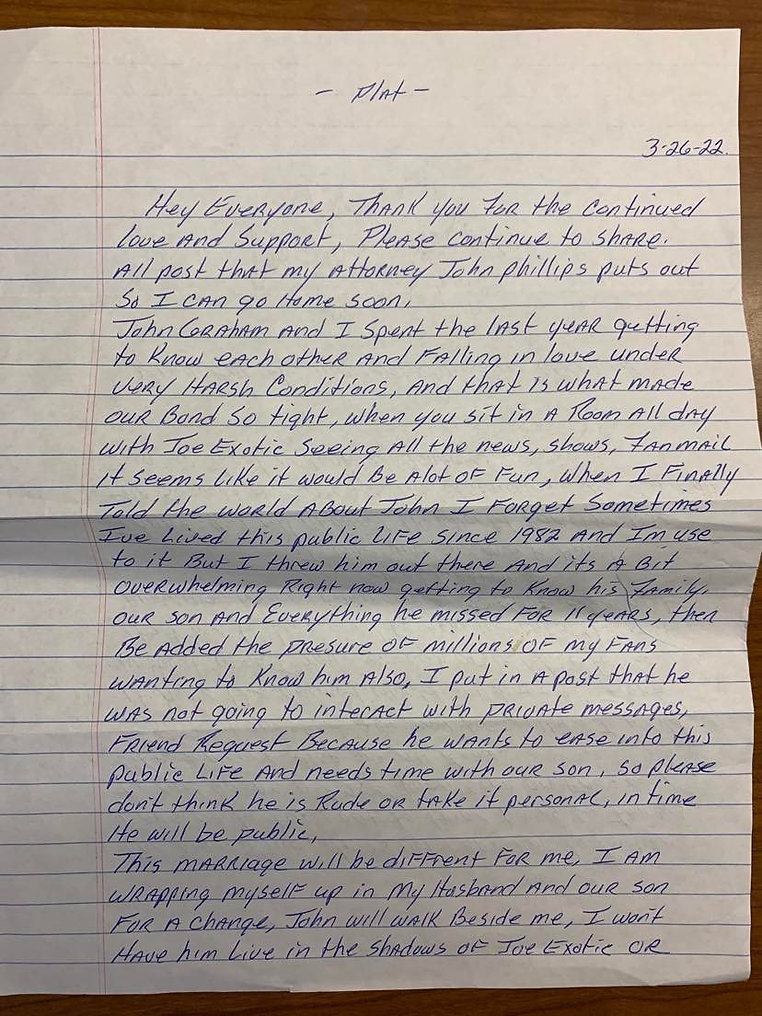 - Plat -
3-26-22.
Hey Everyone, Thank you For the continued
love And Support, Please continue to share.
All post that my Attorney John phillips puts out
So I can go Home soon,
John Graham and I Spent the last year getting
to know each other And Falling in love under
very Harsh Conditions, And that is what made
our Bond so tight, when you sit in A Room All day
with Joe Exotic Seeing All the news, shows, Fanmail
it seems like it would Be Alot of Fun, When I Finally
Told the world About John I Forget Sometimes
Ive Lived this public life since 1982 And Im use
to it But I threw him out there And its A Bit
overwhelming Right now getting to know his Family,
our son and Everything he missed For 11 years, then
Be Added the presure of millions of my Fans
wanting to know him Also, I put in A post that he
was not going to interact with private messages,
Friend Request Because he wants to ease into this
public Life And needs time with our son, so please
dont think he is Rude or take it personal, in time
He will be public,
This marriage will be diffrent For me, I am
wrapping myself up in My Husband And our son
For A change, John will walk Beside me, I wont
Have him Live in the shadows of Joe Exotic or